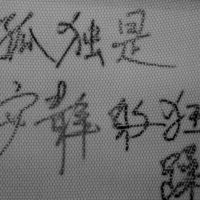 孤独是
安静的狂
躁